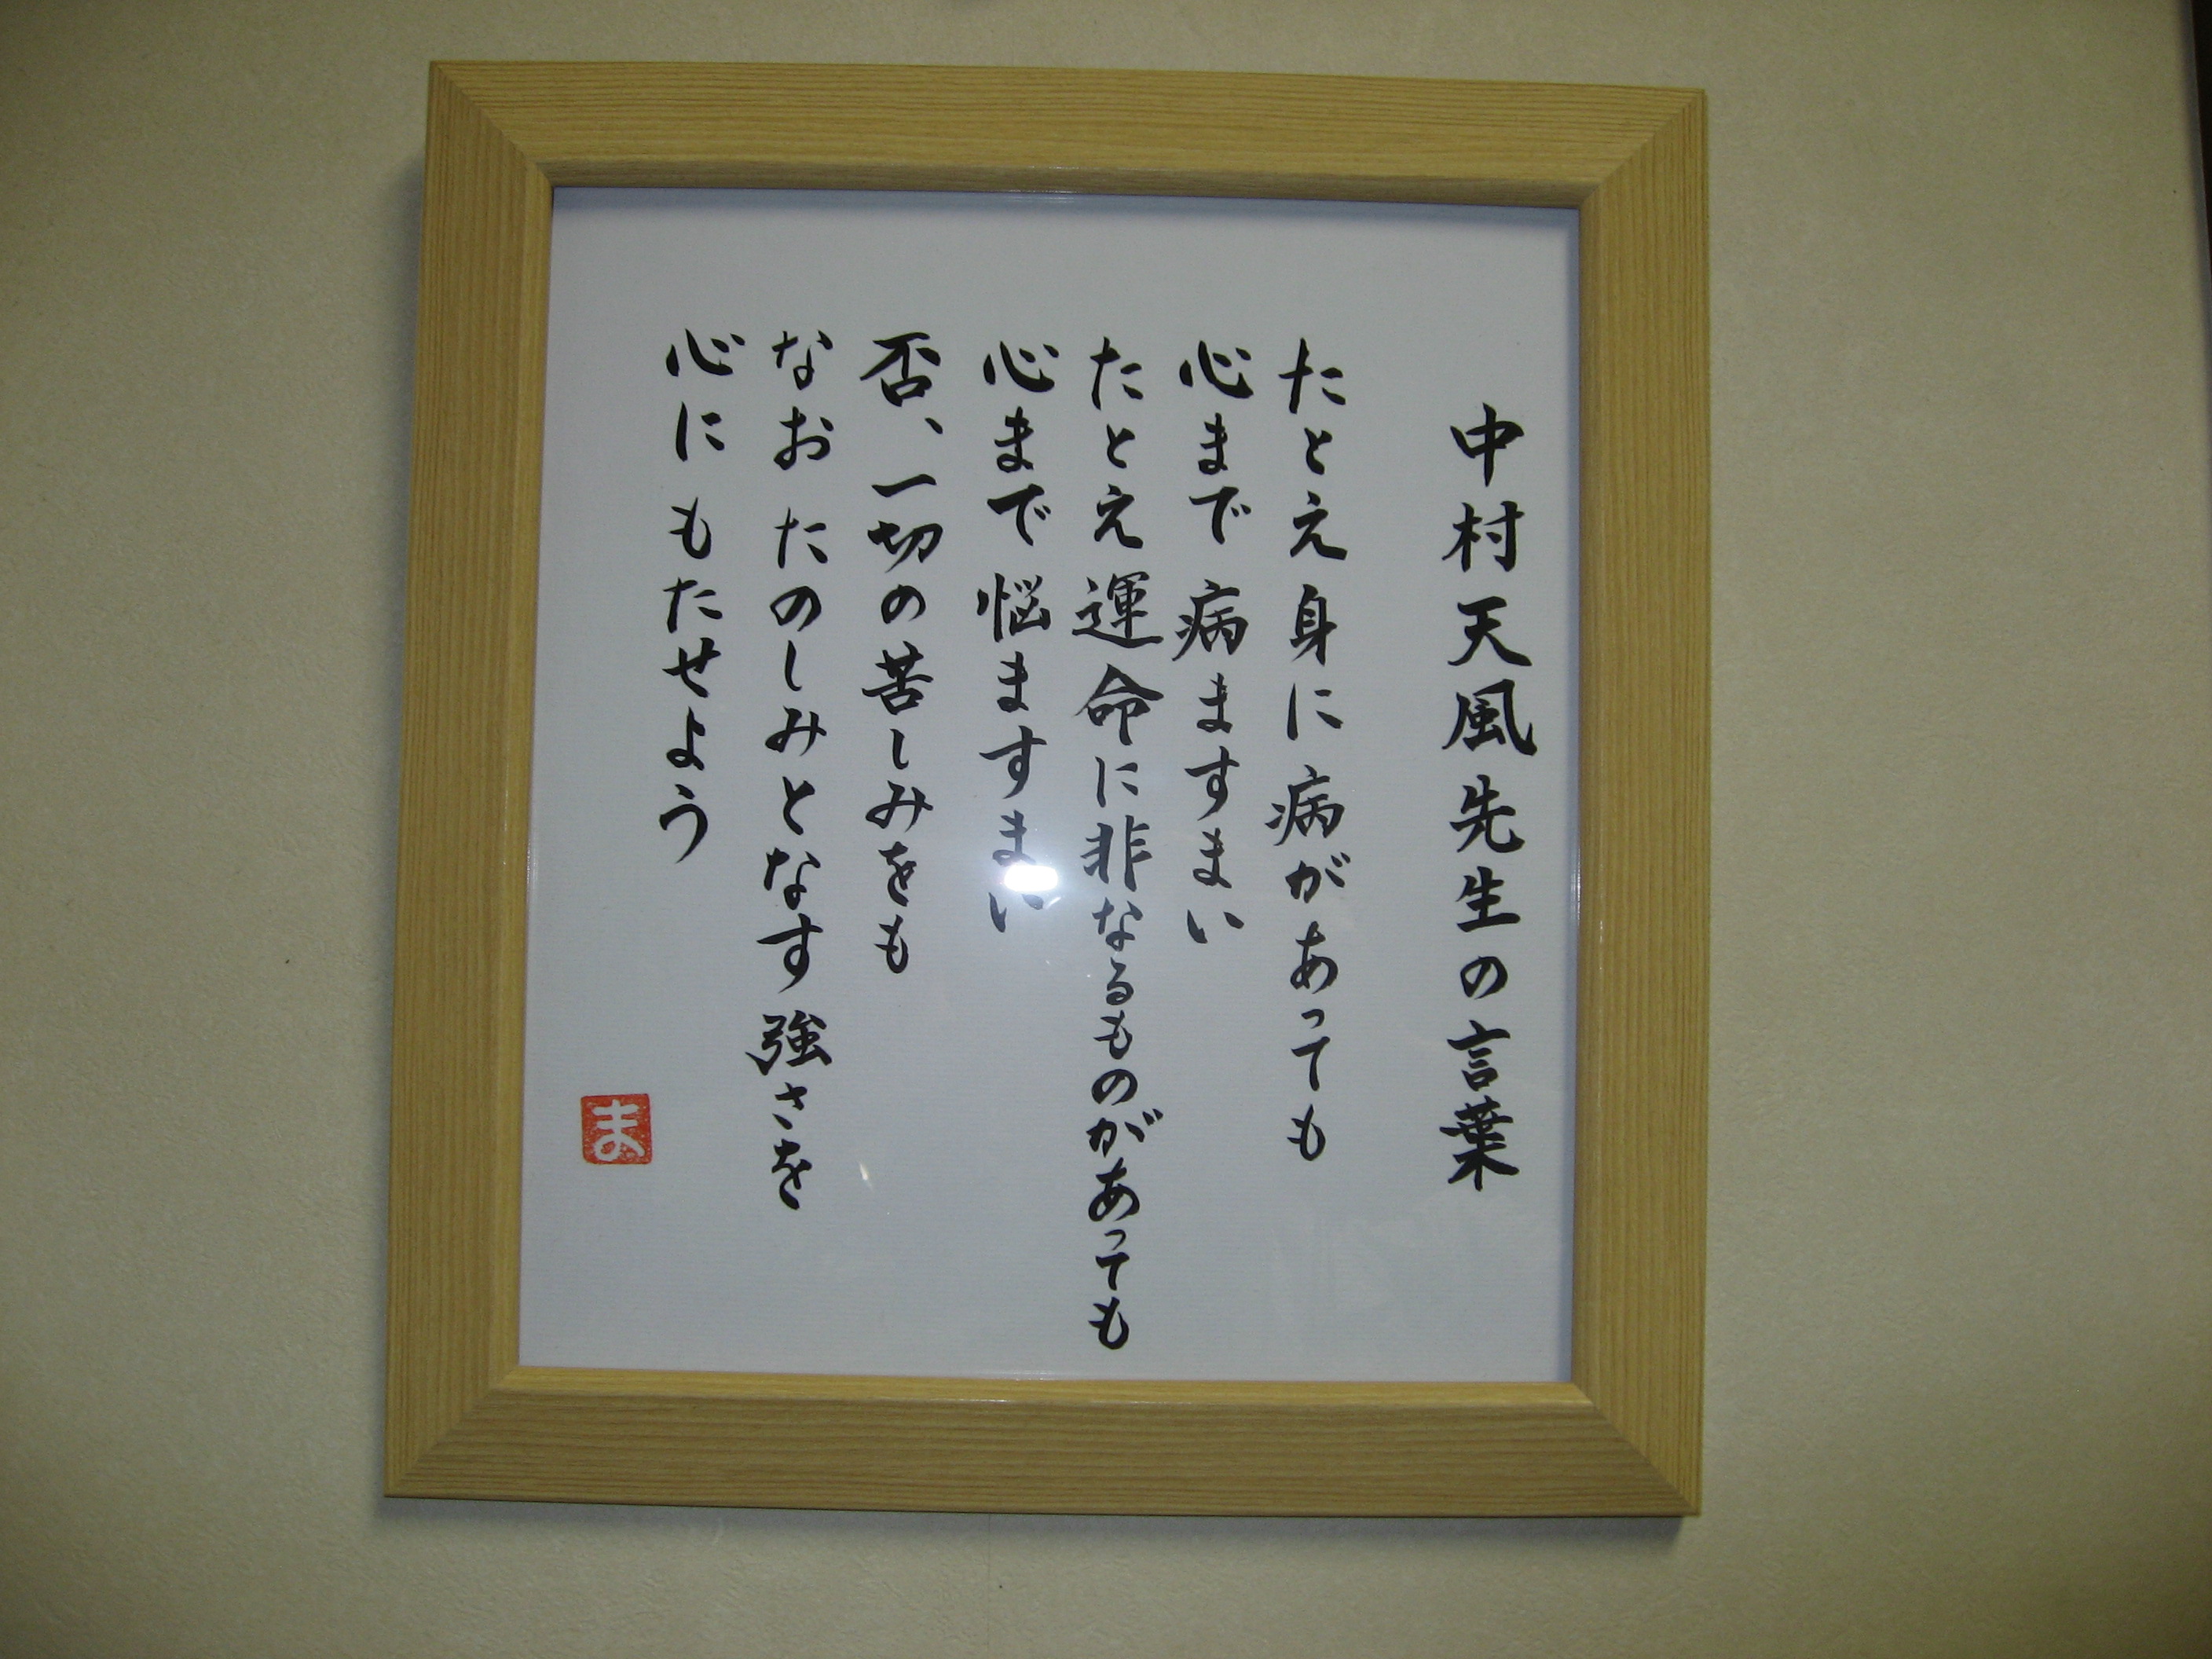 中村天風先生の言葉
たとえ身に病があっても
心まで病ますまい
たとえ運命に非なるものがあっても
心まで悩ますまい
否、一切の苦しみをも
なおたのしみとなす強さを
心にもたせよう
ま